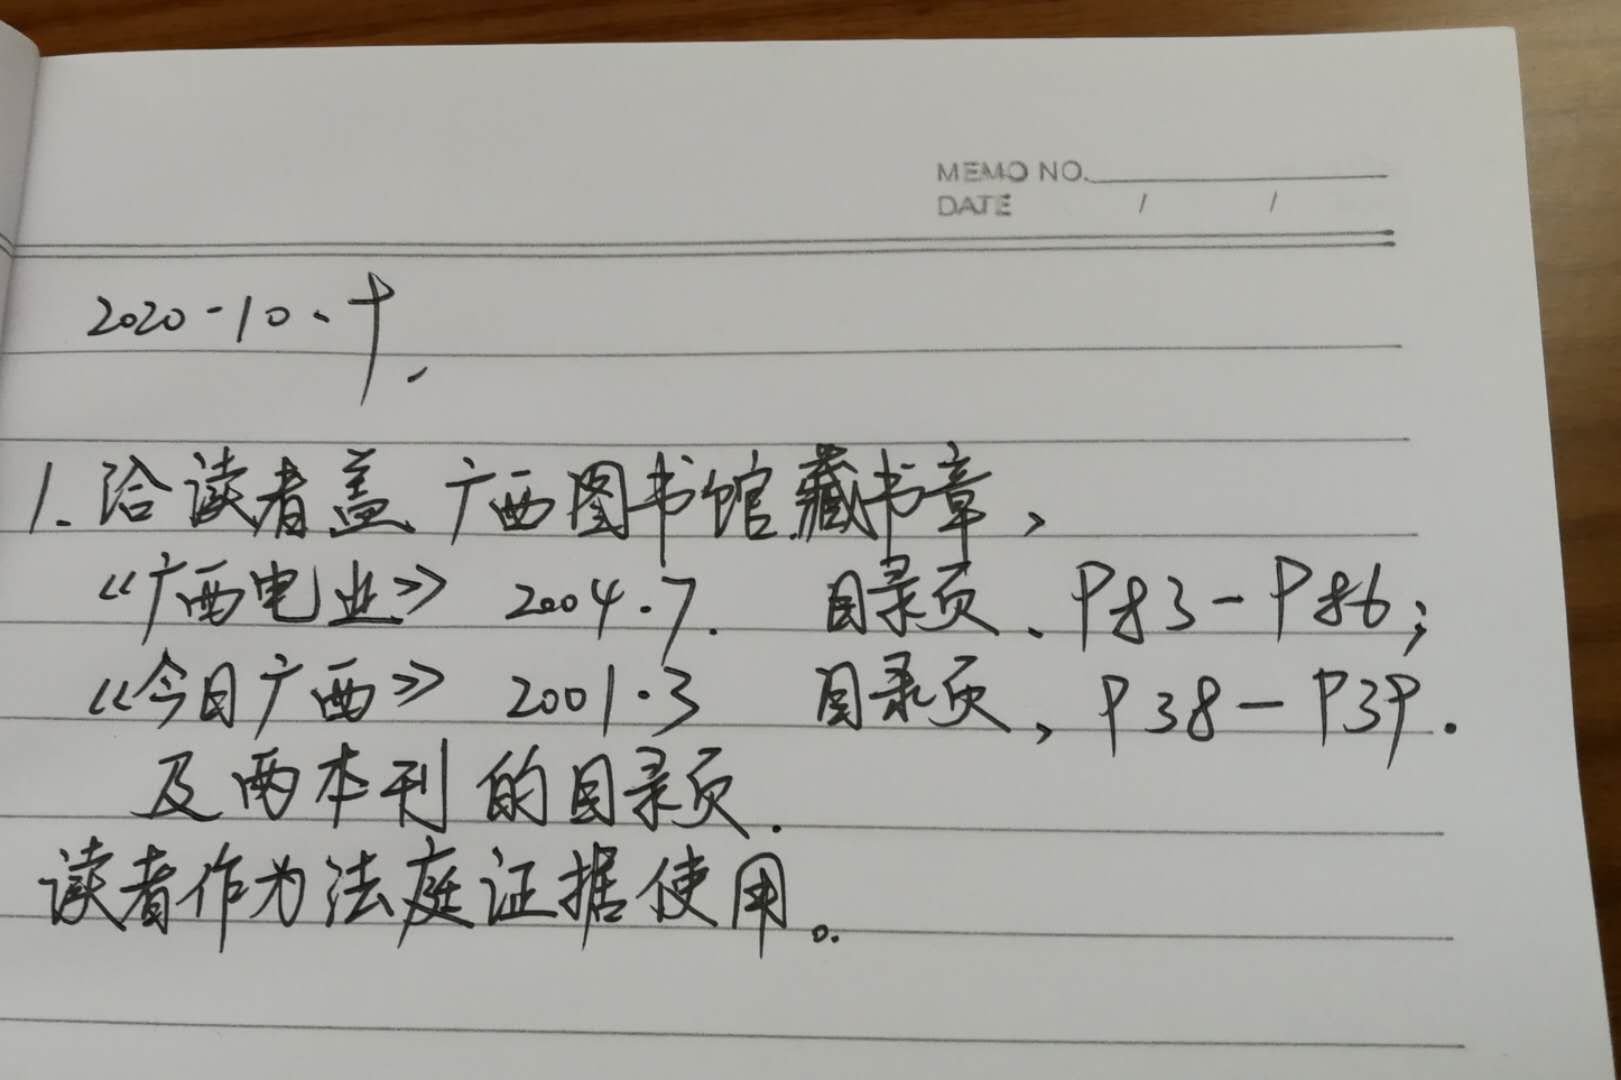 MEMO NO.
DATE / /
2020-10、
1. 给读者盖广西图书馆藏书章，
《广西电业》 2004.7. 目录页、P83-P86；
《今日广西》 2001.3 目录页，P38-P39.
及两本刊的目录页.
读者作为法庭证据使用。